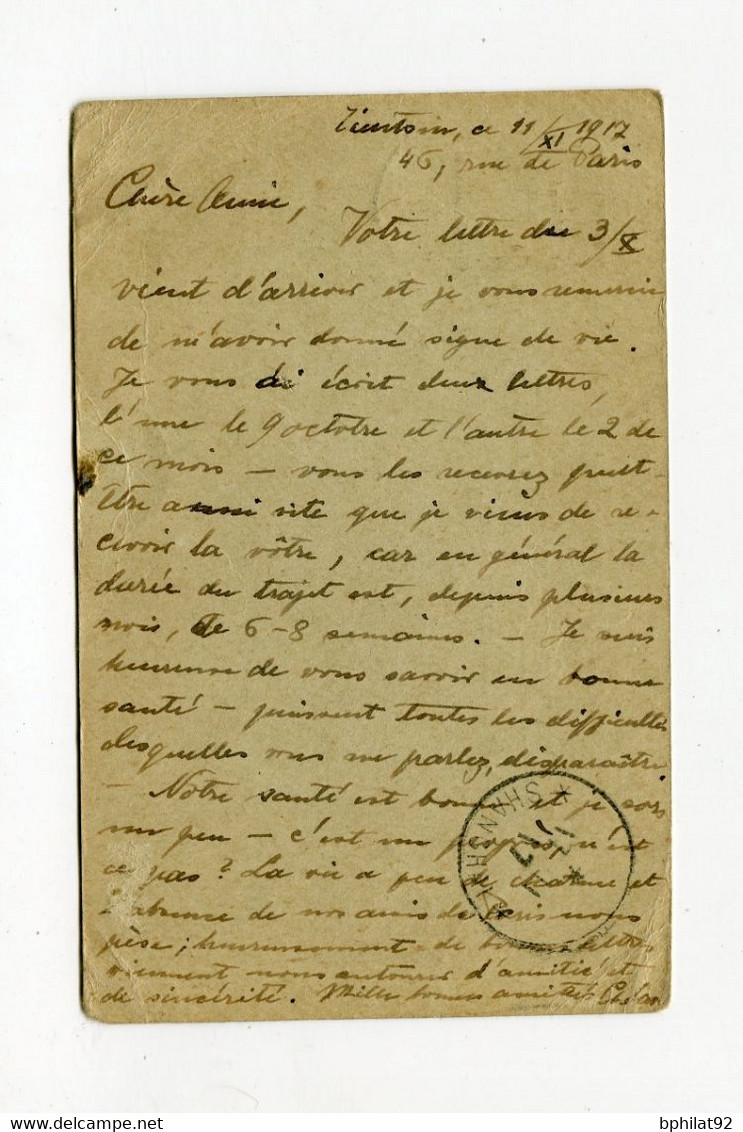 Tientsin, ce 11/XI 1917
46, rue de Paris
Chère Amie,
Votre lettre du 3/X
vient d'arriver et je vous remercie
de m'avoir donné signe de vie.
Je vous ai écrit deux lettres,
l'une le 9 octobre et l'autre le 2 de
ce mois – vous les recevrez peut-
être aussi vite que je viens de re-
cevoir la vôtre, car en général la
durée du trajet est, depuis plusieurs
mois, de 6-8 semaines. – Je suis
heureuse de vous savoir en bonne
santé – puissent toutes les difficultés
desquelles vous me parlez, disparaître
– Notre santé est bonne et je sors
un peu – c'est un progrès, n'est
ce pas? La vie a peu de charme et
l'absence de nos amis de nous
pèse; heureusement de bonnes lettres
viennent nous entourer d'amitié et
de sincérité. Mille bonnes amitiés
SHANGHAI
bphilat92